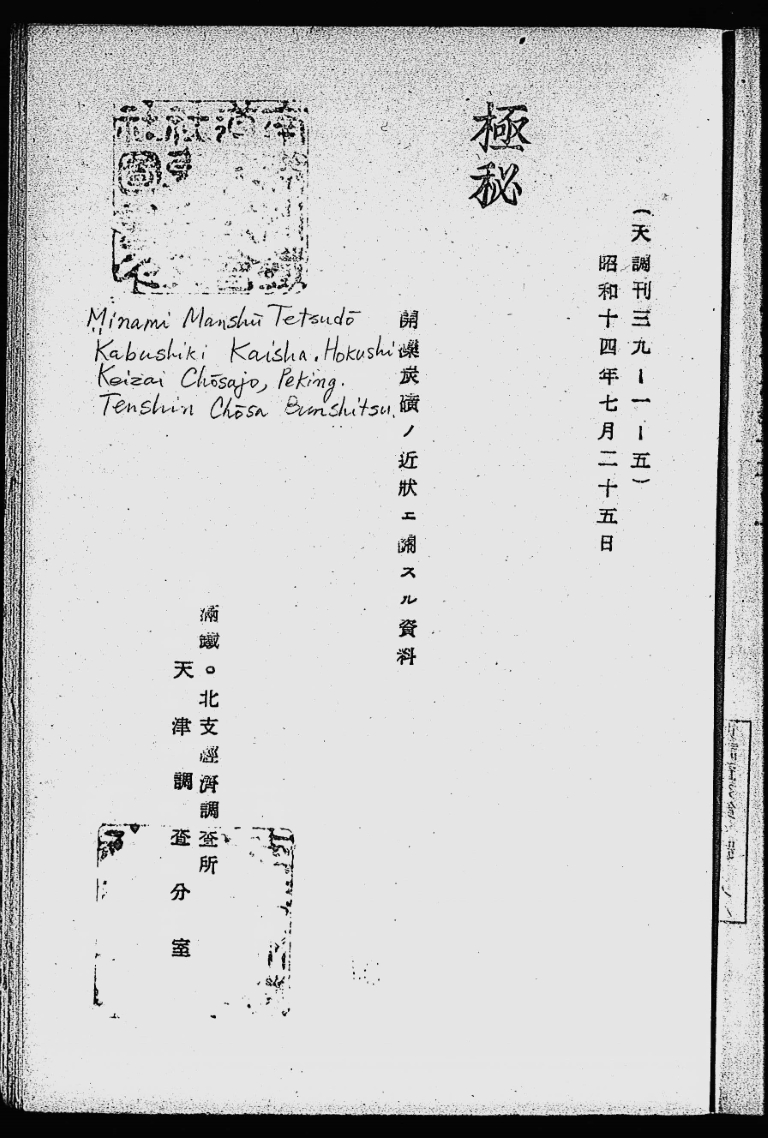 (天調刊三九ー一ー五)
昭和十四年七月二十五日
極秘
開灤炭礦ノ近狀ニ關スル資料
滿鐵。北支經濟調査所
天津調査分室
Minami Manshū Tetsudō
Kabushiki Kaisha. Hokushi
Keizai Chōsajo, Peking.
Tenshin Chōsa Bunshitsu.